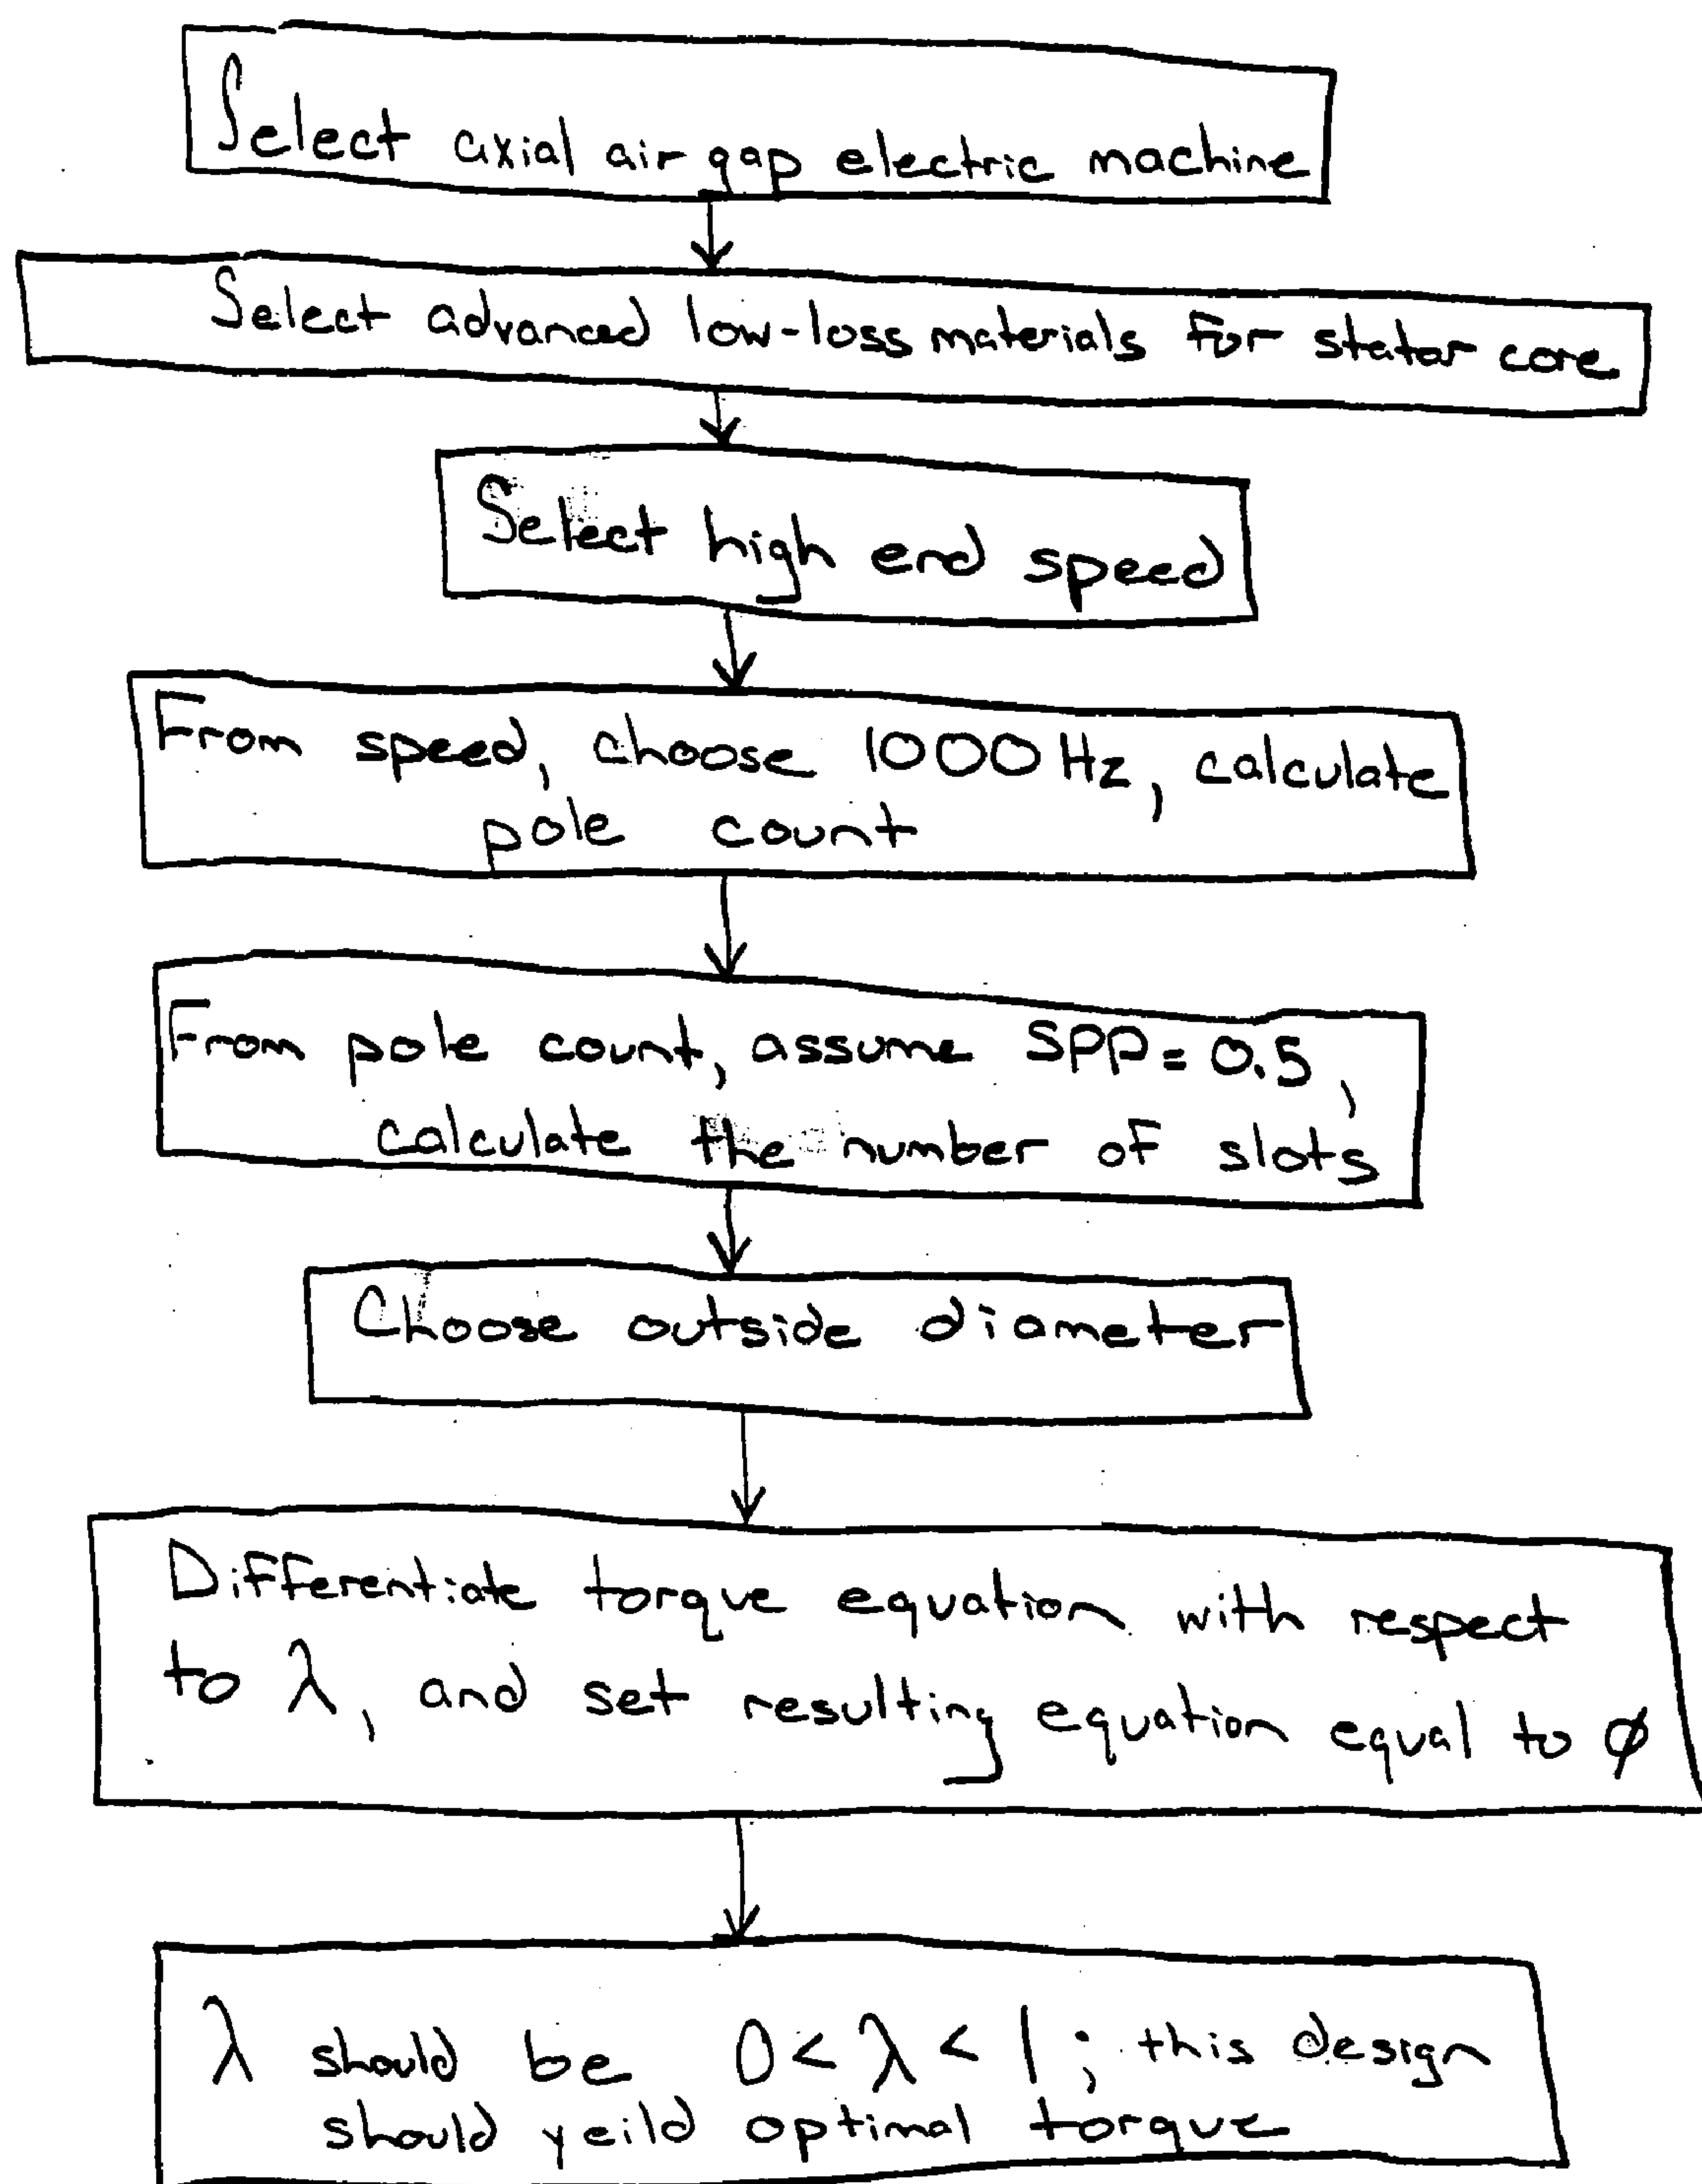 Select axial air gap electric machine
Select advanced low-loss materials for stator core
Select high end speed
From speed, choose 1000 Hz, calculate
pole count
From pole count, assume SPP = 0.5,
calculate the number of slots
Choose outside diameter
Differentiate torque equation with respect
to λ, and set resulting equation equal to ϕ
λ should be 0 < λ < 1; this design
should yeild optimal torque